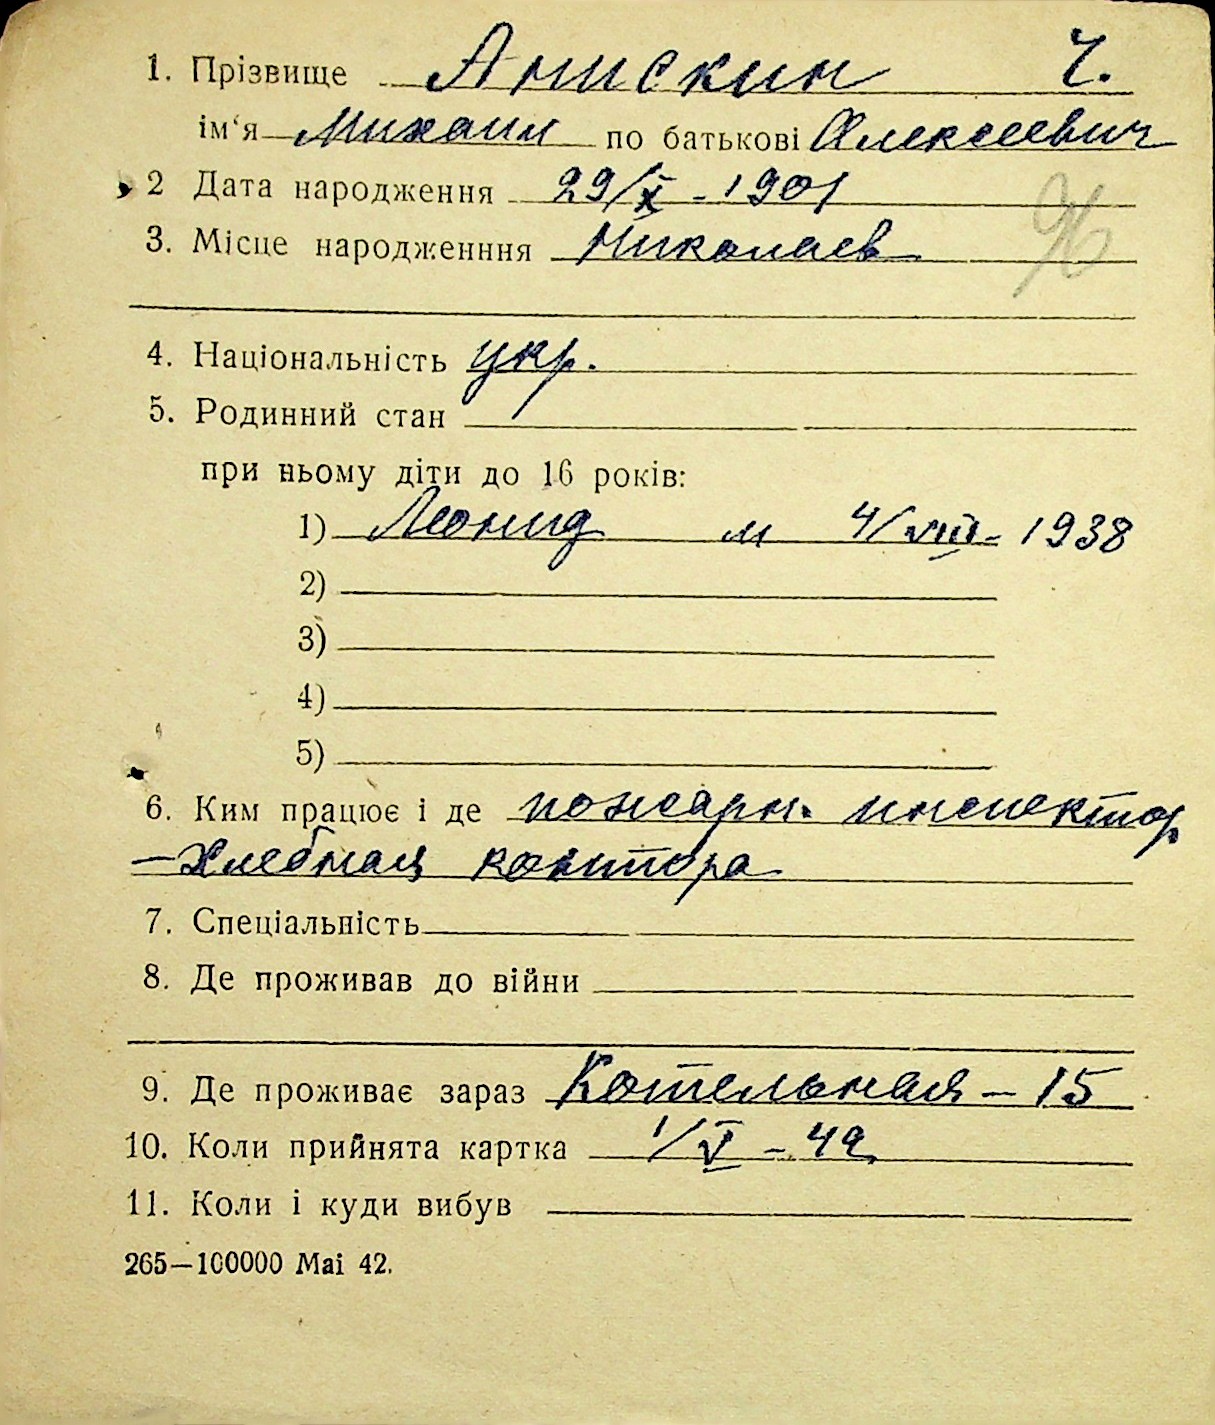 1. Прізвище Анискин Ч.
ім‘я Михаил по батькові Алексеевич
2 Дата народження 29/X - 1901
3. Місце народженння Николаев
96
4. Національність укр.
5. Родинний стан
при ньому діти до 16 років:
1) Леонид м 4/VIII - 1938
2)
3)
4)
5)
6. Ким працює і де пожарн. инспектор
– Хлебная контора
7. Спеціальність
8. Де проживав до війни
9. Де проживає зараз Котельная – 15
10. Коли прийнята картка 1/V - 42
11. Коли і куди вибув
265—100000 Mai 42.